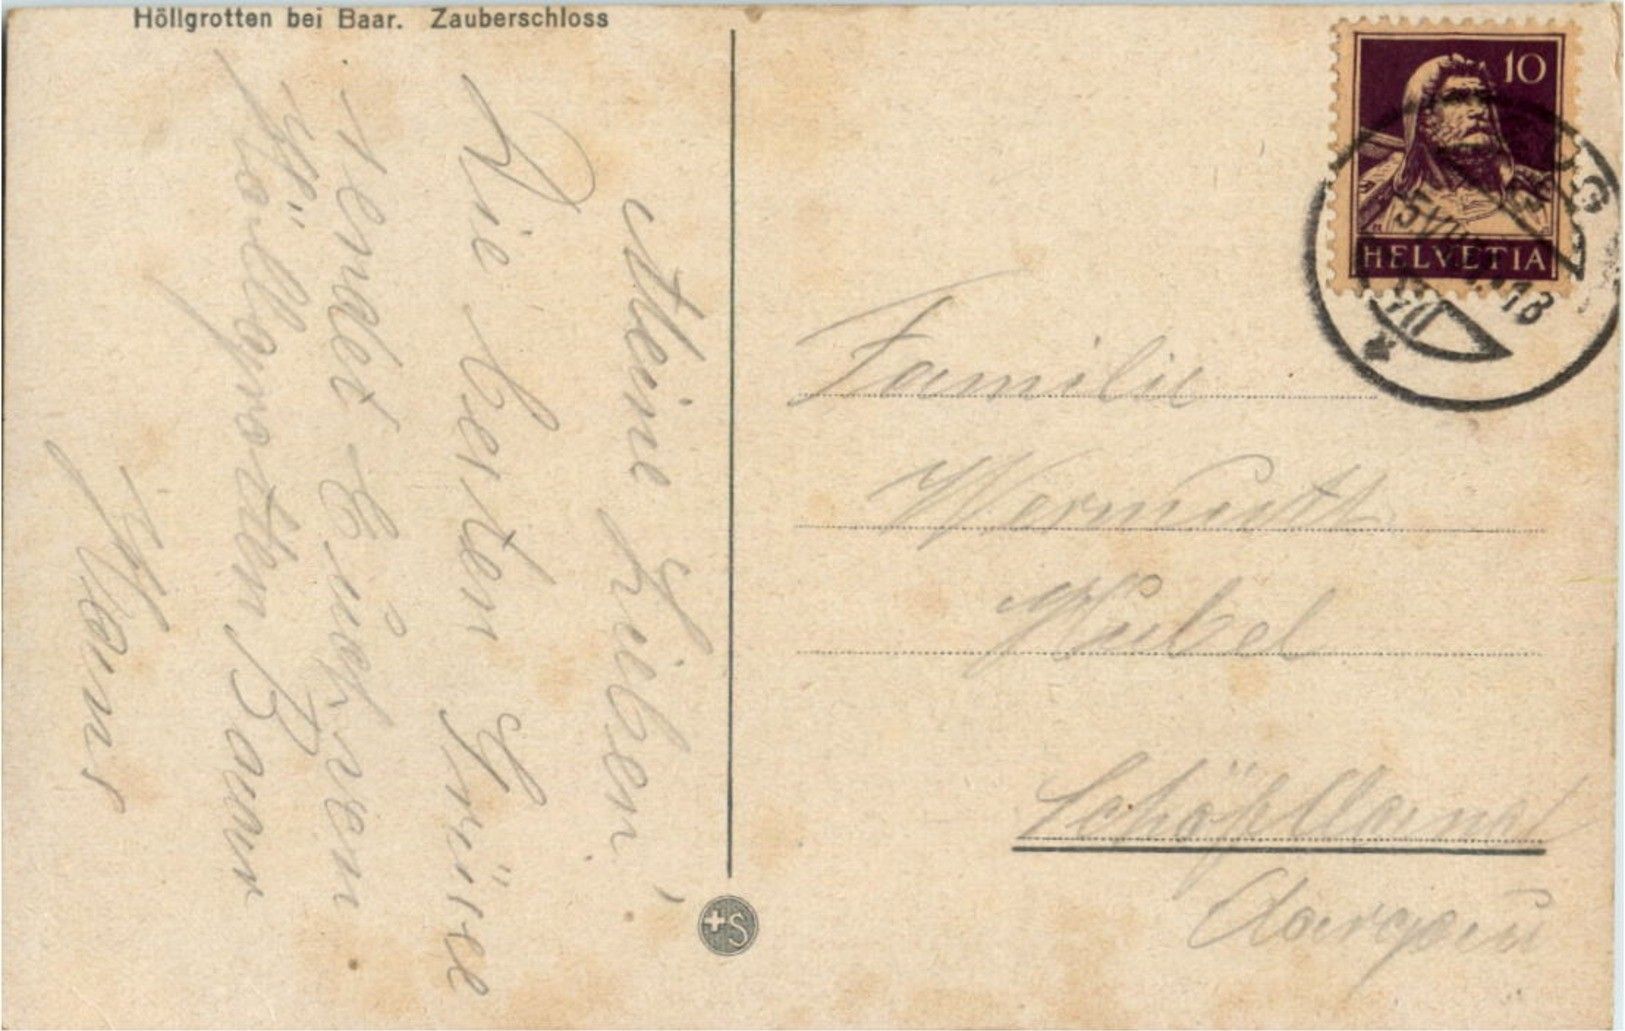 Höllgrotten bei Baar. Zauberschloss
Meine Lieben,
Die besten Grüsse
sendet Euch von
Höllgrotten Baar
Hans
10
HELVETIA
Familie
Wermuth
Kubel
Schöftland
Aargau
+S